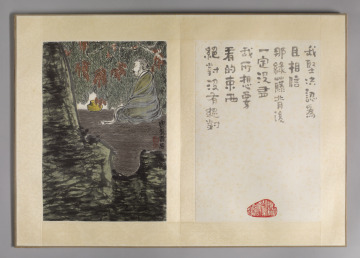 我堅決認為
且相信
那綠蘿背後
一定沒畫
我所想要
看的東西
絕對沒有聽對